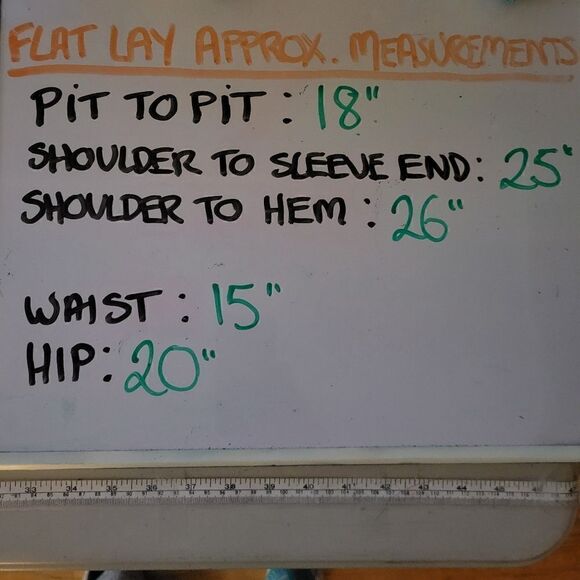 FLAT LAY APPROX. MEASUREMENTS
PiT TO PiT : 18"
SHOULDER TO SLEEVE END: 25"
SHOULDER TO HEM : 26"
WAIST : 15"
HIP: 20"
33 34 35 36 37 38 39 40 41 42 43 44 45